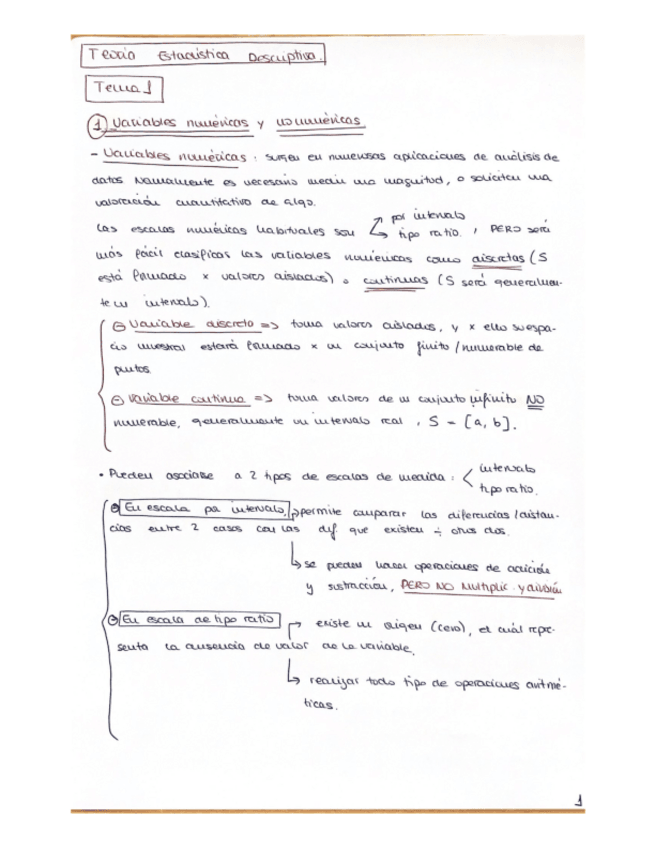 Teoría Estadística Descriptiva.
Tema 1
1 Variables numéricas y no numéricas
- Variables numéricas: surgen en numerosas aplicaciones de análisis de
datos Normalmente es necesario medir una magnitud, o solicitar una
valoración cuantitativa de algo.
por intervalo
Las escalas numéricas habituales son tipo ratio. , PERO será
más fácil clasificar las variables numéricas como discretas (S
está formado x valores aislados) o continuas (S será generalmen-
te un intervalo).
Variable discreta => toma valores aislados, y x ello su espa-
cio muestral estará formado x un conjunto finito/numerable de
puntos.
Variable continua => toma valores de un conjunto infinito NO
numerable, generalmente un intervalo real , S = [a, b].
• Pueden asociarse a 2 tipos de escalas de medida: intervalo
tipo ratio.
En escala por intervalo, permite comparar las diferencias/distan-
cias entre 2 casos con las dif. que existen ÷ otros dos.
se pueden hacer operaciones de adición
y sustracción, PERO NO Multiplic. y división
En escala de tipo ratio → existe un origen (cero), el cuál repre-
senta la ausencia de valor de la variable.
realizar todo tipo de operaciones aritmé-
ticas.
1